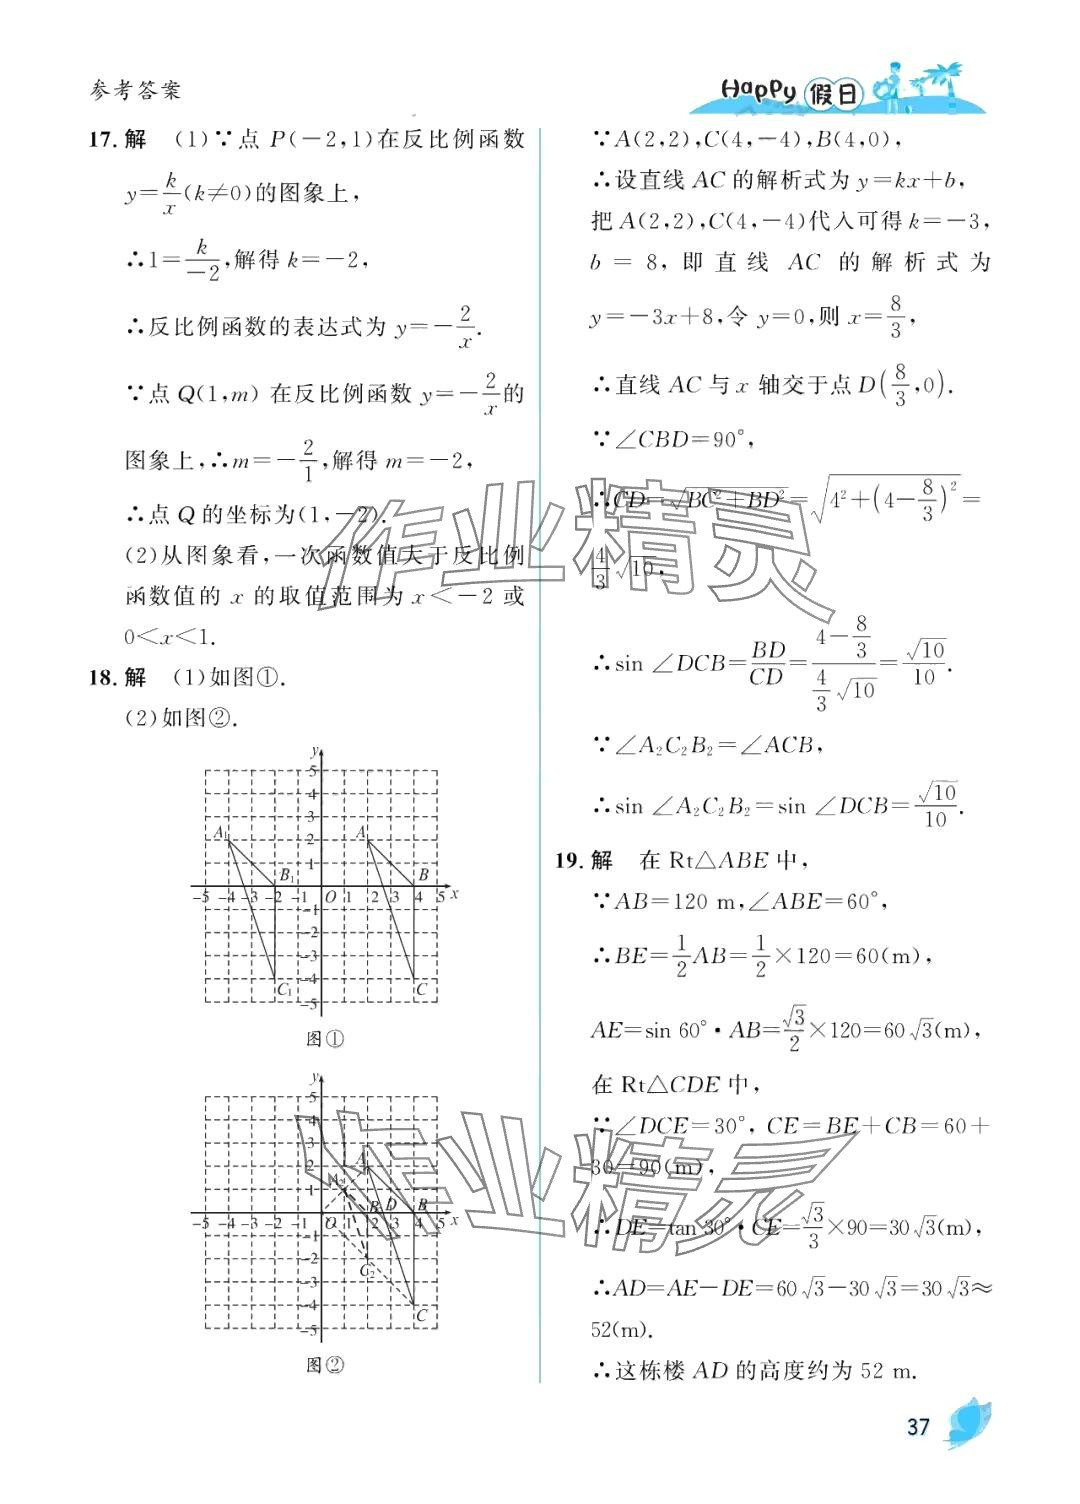 参考答案
Happy 假日
17. 解 (1)∵点 P(－2,1)在反比例函数
y=k/x(k≠0)的图象上,
∴1=k/－2,解得 k=－2,
∴反比例函数的表达式为 y=－2/x.
∵点 Q(1,m) 在反比例函数 y=－2/x的
图象上,∴m=－2/1,解得 m=－2,
∴点 Q 的坐标为(1,－2).
(2)从图象看,一次函数值大于反比例
函数值的 x 的取值范围为 x<－2 或
0<x<1.
18. 解 (1)如图①.
(2)如图②.
y
5
4
3
A₁ A 2
1
B₁ B
－5 －4 －3 －2 －1 O 1 2 3 4 5 x
－1
－2
－3
－4
C₁ C
－5
图①
y
5
4
3
2 A
1 A₂
B₂ D B
－5 －4 －3 －2 －1 O 1 2 3 4 5 x
－1
－2
C₂
－3
－4
C
－5
图②
∵A(2,2),C(4,－4),B(4,0),
∴设直线 AC 的解析式为 y=kx+b,
把 A(2,2),C(4,－4)代入可得 k=－3,
b = 8, 即 直 线 AC 的 解 析 式 为
y=－3x+8,令 y=0,则 x=8/3,
∴直线 AC 与 x 轴交于点 D(8/3,0).
∵∠CBD=90°,
∴CD=√(BC²+BD²)=√(4²+(4－8/3)²)=
4/3√10,
∴sin ∠DCB=BD/CD=(4－8/3)/(4/3√10)=√10/10.
∵∠A₂C₂B₂=∠ACB,
∴sin ∠A₂C₂B₂=sin ∠DCB=√10/10.
19. 解 在 Rt△ABE 中,
∵AB=120 m,∠ABE=60°,
∴BE=1/2AB=1/2×120=60(m),
AE=sin 60°·AB=√3/2×120=60√3(m),
在 Rt△CDE 中,
∵∠DCE=30°, CE=BE+CB=60+
30=90(m),
∴DE=tan 30°·CE=√3/3×90=30√3(m),
∴AD=AE－DE=60√3－30√3=30√3≈
52(m).
∴这栋楼 AD 的高度约为 52 m.
37
作业精灵
作业精灵